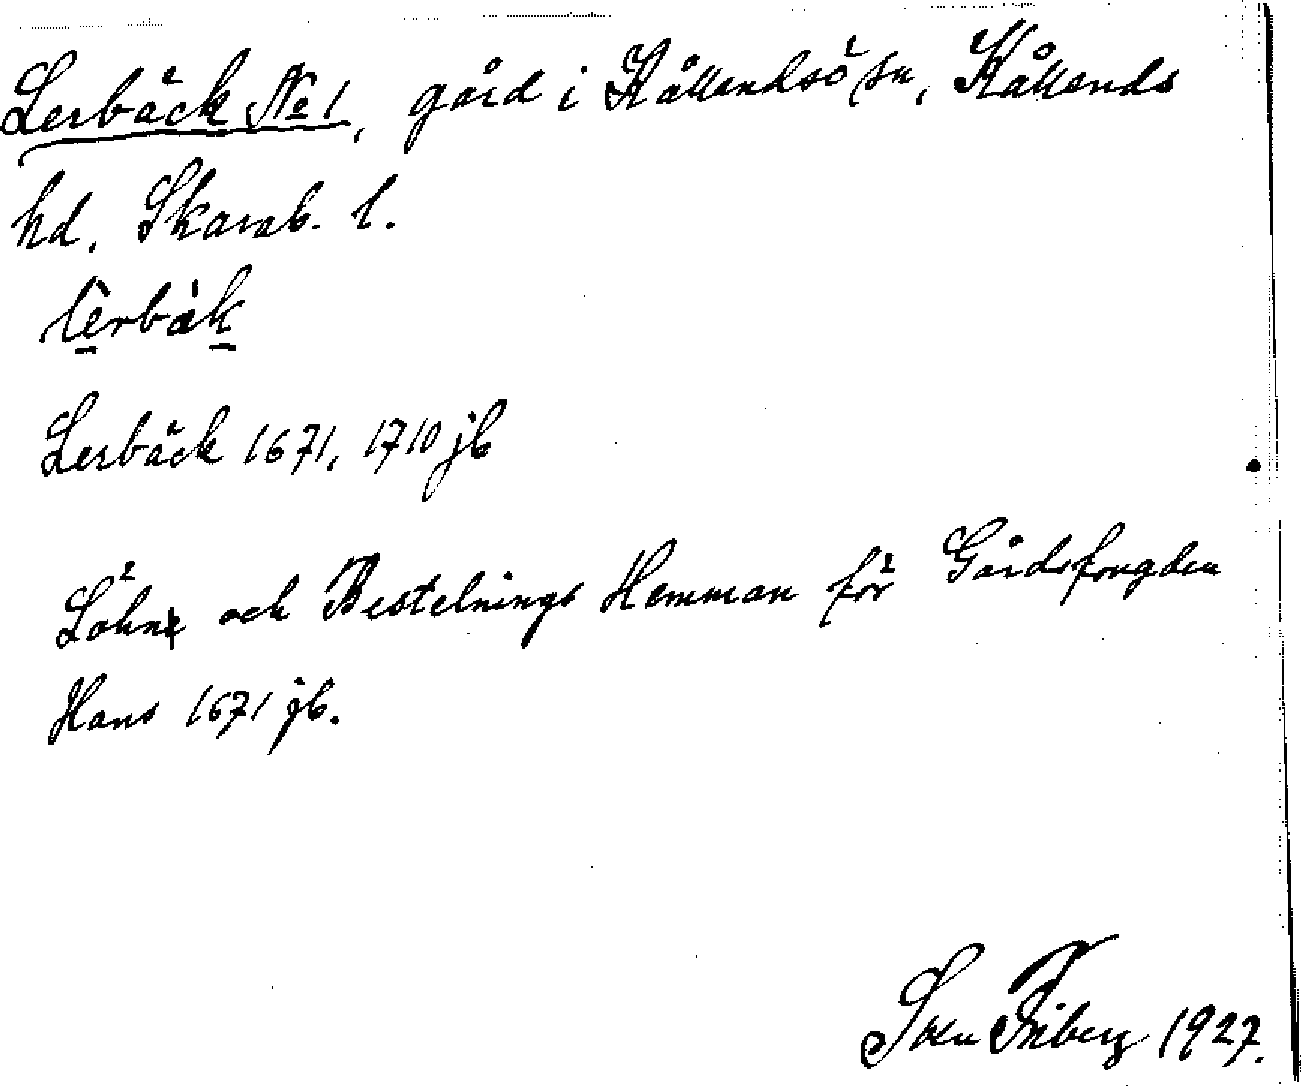 Lerbäck No 1, gård i Kållandsö sn, Kållands
hd, Skarab. l.
lêrbàk
Lerbäck 1671, 1710 jb
Löhne och Bestelnings Hemman för Gårdsfougden
Hans 1671 jb.
Sven Friberg 1927.